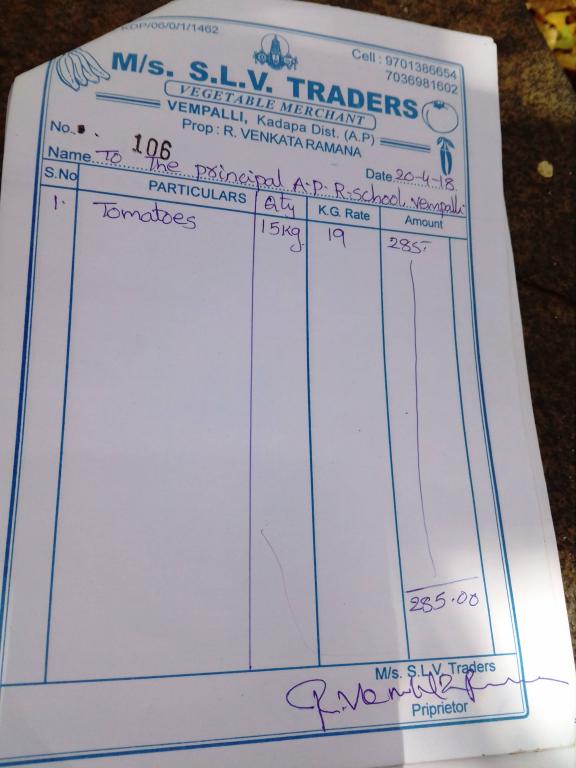 KDP/06/0/1/1462
Cell : 9701386654
7036981602
M/s. S.L.V. TRADERS
VEGETABLE MERCHANT
VEMPALLI, Kadapa Dist. (A.P)
Prop : R. VENKATA RAMANA
No. 106
Date 20-4-18
Name To The principal A.P.R. School, Vempalli
S.No PARTICULARS Qty K.G. Rate Amount
1. Tomatoes 15kg 19 285-
285.00
M/s. S.L.V. Traders
R. Venkata Ramana
Priprietor